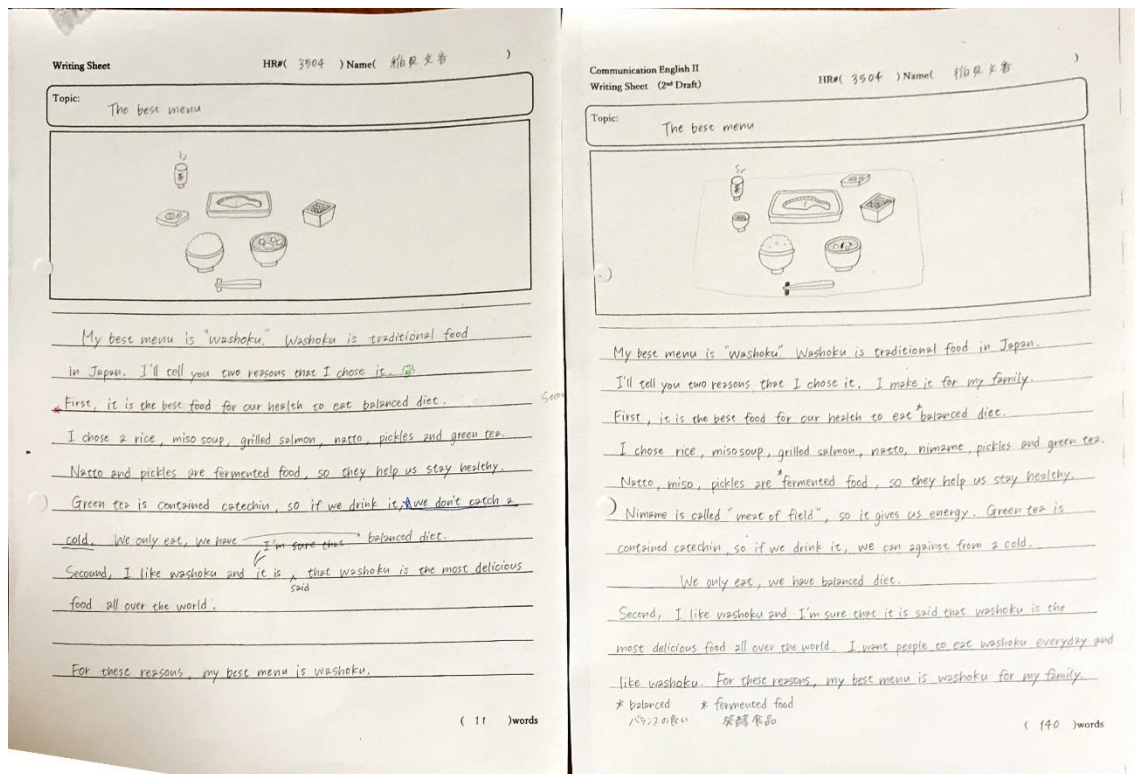 Writing Sheet
HR#( 3504 ) Name( 文香 )
Topic:
The best menu
My best menu is "washoku." Washoku is traditional food
in Japan. I'll tell you two reasons that I chose it.
*First, it is the best food for our health to eat balanced diet.
I chose a rice, miso soup, grilled salmon, natto, pickles and green tea.
Natto and pickles are fermented food, so they help us stay healthy.
Green tea is contained catechin, so if we drink it, we don't catch a
cold. We only eat, we have balanced diet.
I'm sure that
Secound, I like washoku and it is said that washoku is the most delicious
food all over the world.
For these reasons, my best menu is washoku.
( 11 )words
Communication English II
Writing Sheet (2nd Draft)
HR#( 3504 ) Name( 文香 )
Topic:
The best menu
My best menu is "washoku." Washoku is traditional food in Japan.
I'll tell you two reasons that I chose it. I make it for my family.
First, it is the best food for our health to eat *balanced diet.
I chose rice, miso soup, grilled salmon, natto, nimame, pickles and green tea.
Natto, miso, pickles are *fermented food, so they help us stay healthy.
Nimame is called "meat of field", so it gives us energy. Green tea is
contained catechin, so if we drink it, we can against from a cold.
We only eat, we have balanced diet.
Second, I like washoku and I'm sure that it is said that washoku is the
most delicious food all over the world. I want people to eat washoku everyday and
like washoku. For these reasons, my best menu is washoku for my family.
* balanced * fermented food
バランスの良い 発酵食品
( 140 )words